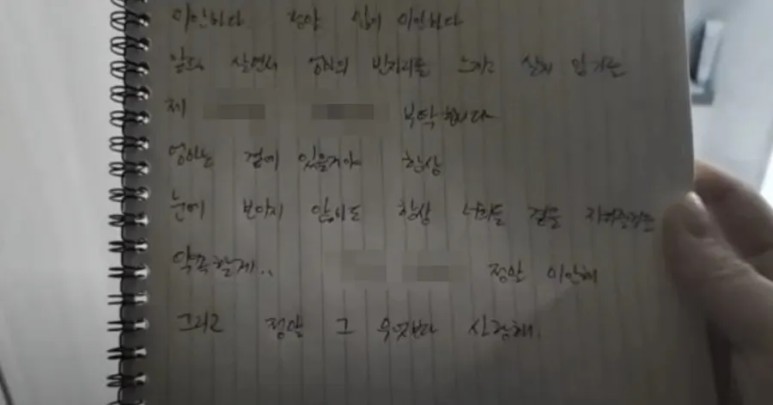 미안하다 정말 많이 미안하다
앞으로 살면서 엄마의 빈자리를 느끼고 싶지 않기는
제 부탁합니다
엄마는 곁에 있을거야 항상
눈에 보이지 않아도 항상 너희들 곁을 지켜준다고
약속할게.. 정말 미안해
그리고 정말 그 무엇보다 사랑해.